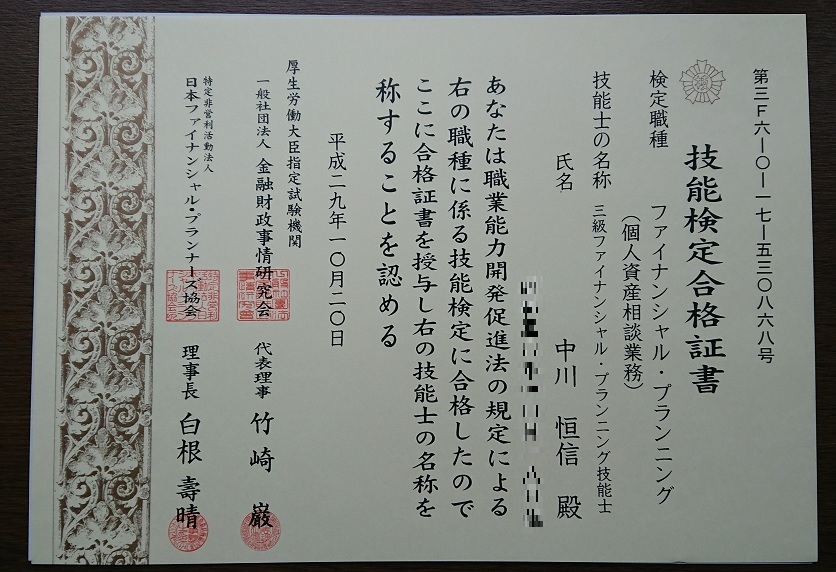 第三F六一〇一一七一五三〇八六八号
技能検定合格証書
検定職種 ファイナンシャル・プランニング
(個人資産相談業務)
技能士の名称 三級ファイナンシャル・プランニング技能士
氏名 中川 恒信 殿
あなたは職業能力開発促進法の規定による
右の職種に係る技能検定に合格したので
ここに合格証書を授与し右の技能士の名称を
称することを認める
平成二九年一〇月二〇日
厚生労働大臣指定試験機関
一般社団法人 金融財政事情研究会 代表理事 竹崎 巌
特定非営利活動法人
日本ファイナンシャル・プランナーズ協会 理事長 白根 壽晴